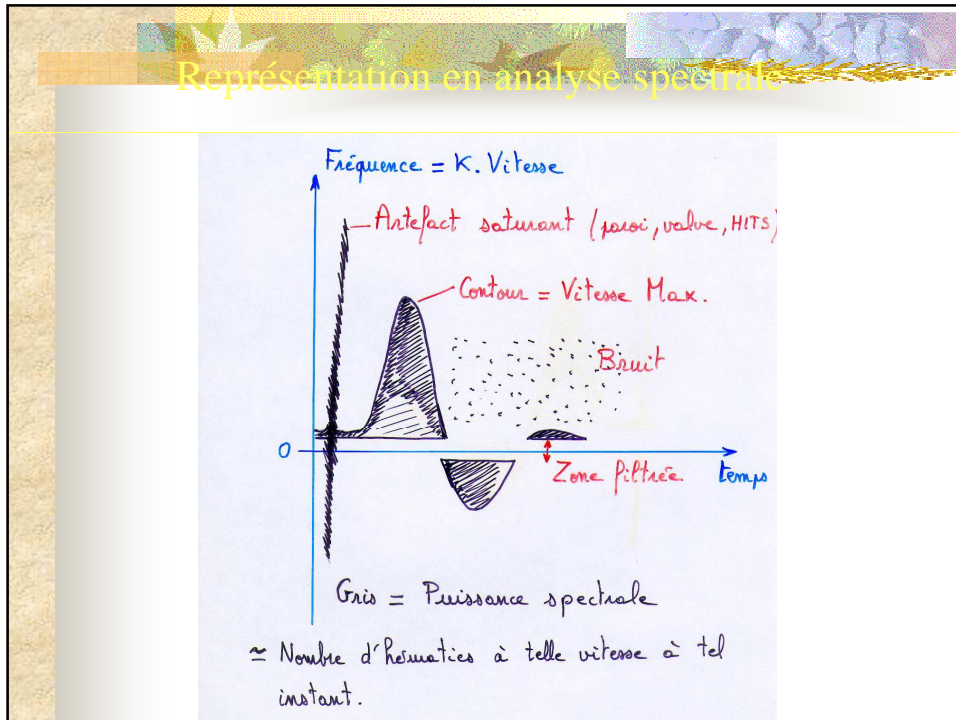 Représentation en analyse spectrale
Fréquence = K. Vitesse
Artefact saturant (paroi, valve, HITS)
Contour = Vitesse Max.
Bruit
0
Zone filtrée
temps
Gris = Puissance spectrale
≃ Nombre d'hématies à telle vitesse à tel
instant.